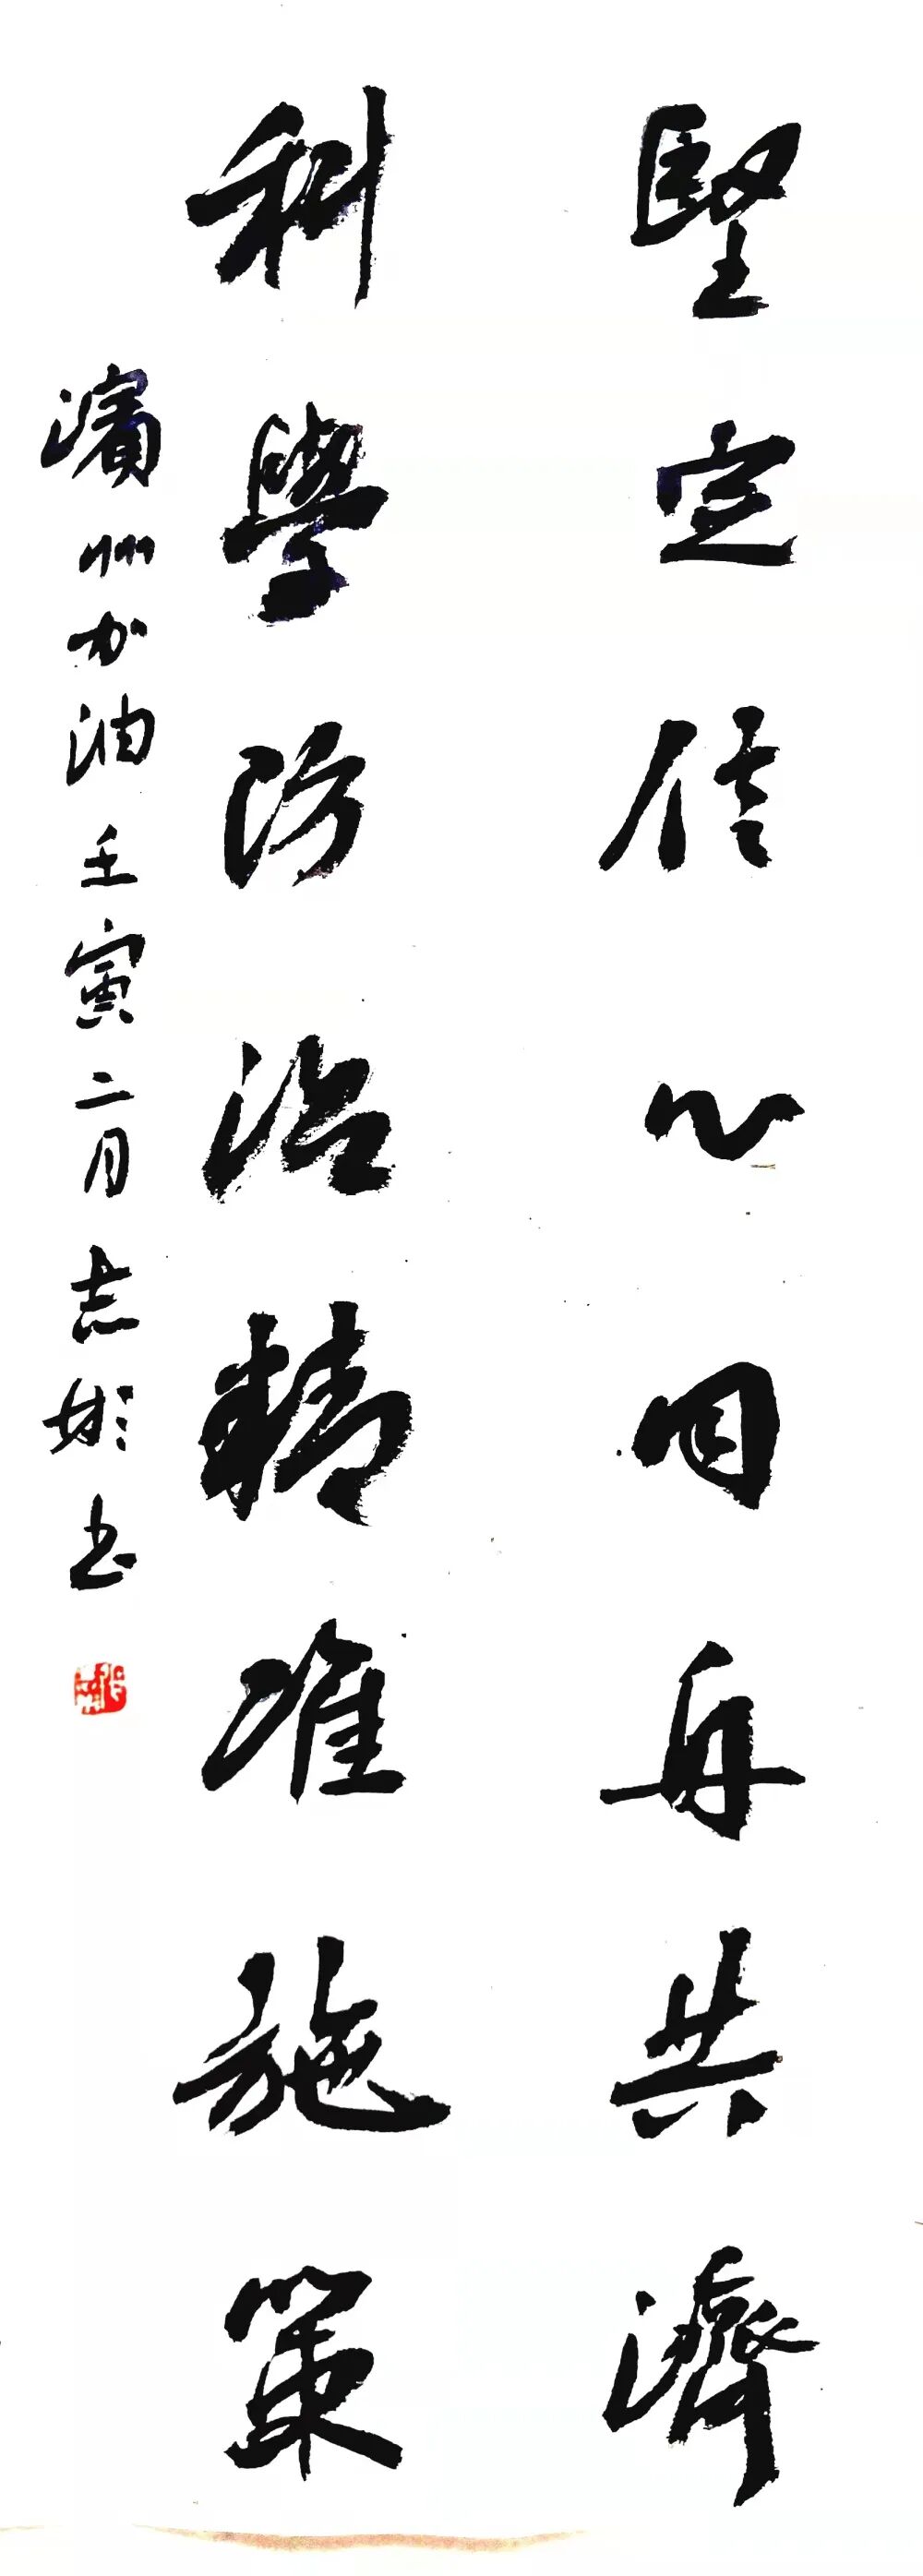 堅定信心同舟共濟
科學防治精准施策
濱州加油壬寅二月志彬书